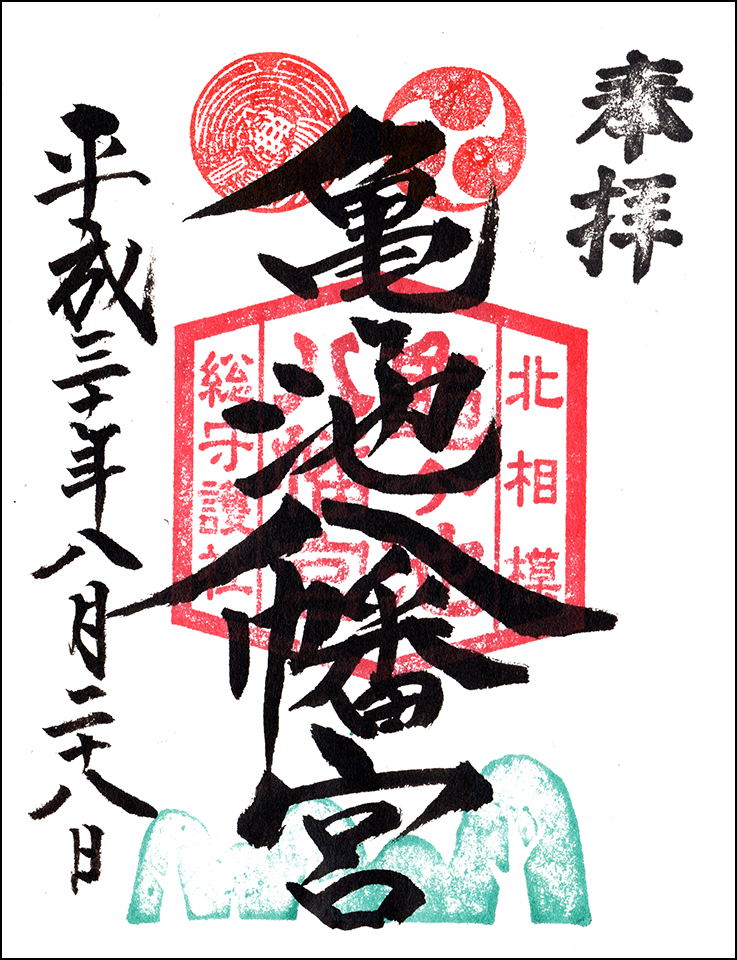 奉拝
北相模
亀ヶ池
八幡宮
総守護社
亀池八幡宮
平成三十年八月二十八日